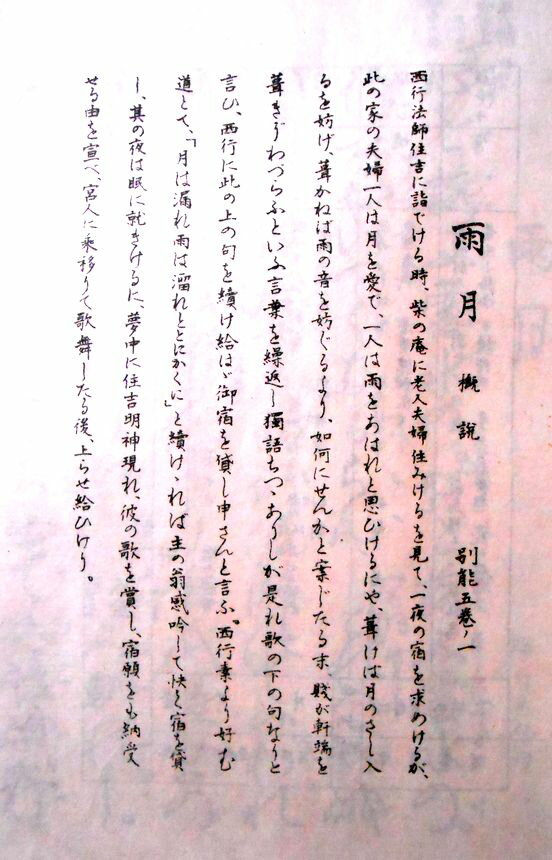 雨月 概説 別能五巻ノ一
西行法師住吉に詣でける時、柴の庵に老人夫婦住みけるを見て、一夜の宿を求めけるが、
此の家の夫婦一人は月を愛で、一人は雨をあはれと思ひけるにや、葺けば月のさし入
るを妨げ、葺かねば雨の音を妨ぐるより、如何にせんかと案じたる末、賤が軒端を
葺きぞわづらふといふ言葉を繰返し獨語ちつゝありしが是れ歌の下の句なりと
言ひ、西行に此の上の句を續け給はゞ御宿を貸し申さんと言ふ。西行素より好む
道とて、「月は漏れ雨は溜れととにかくに」と續けゝれば主の翁感吟して快く宿を貸
し、其の夜は眠に就きけるに、夢中に住吉明神現れ、彼の歌を賞し、宿願をも納受
せる由を宣べ、宮人に乗移りて歌舞したる後、上らせ給ひけり。